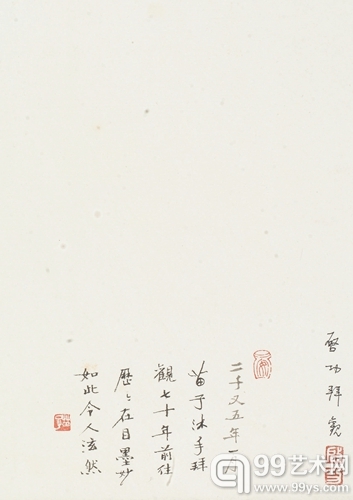 啓功拜觀
二千又五年一月
苗子沐手拜
觀七十年前往
歷々在目墨妙
如此令人泫然
99艺术网
www.99ys.com